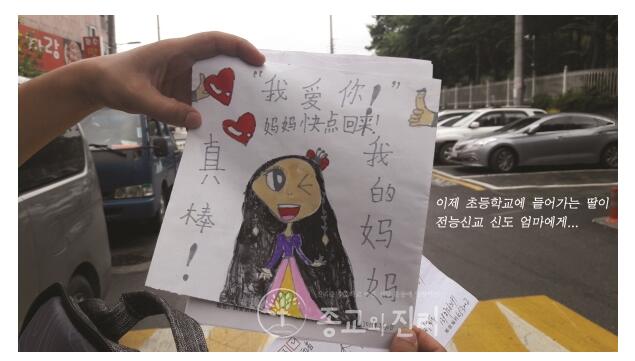 "我爱你!"
妈妈快点回来!
真棒!
我的妈妈
이제 초등학교에 들어가는 딸이
전능신교 신도 엄마에게...
종교와 진리